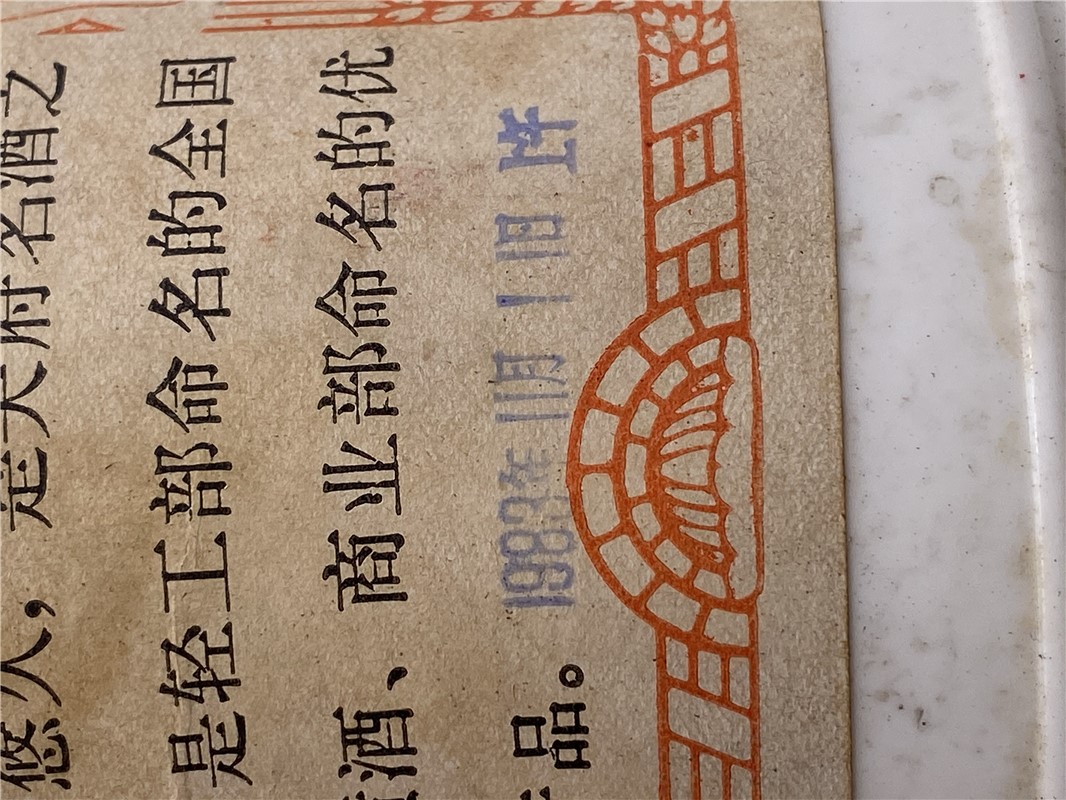 悠久，是天府名酒之
是轻工部命名的全国
酒、商业部命名的优
品。 1983年 11月 11日 上午